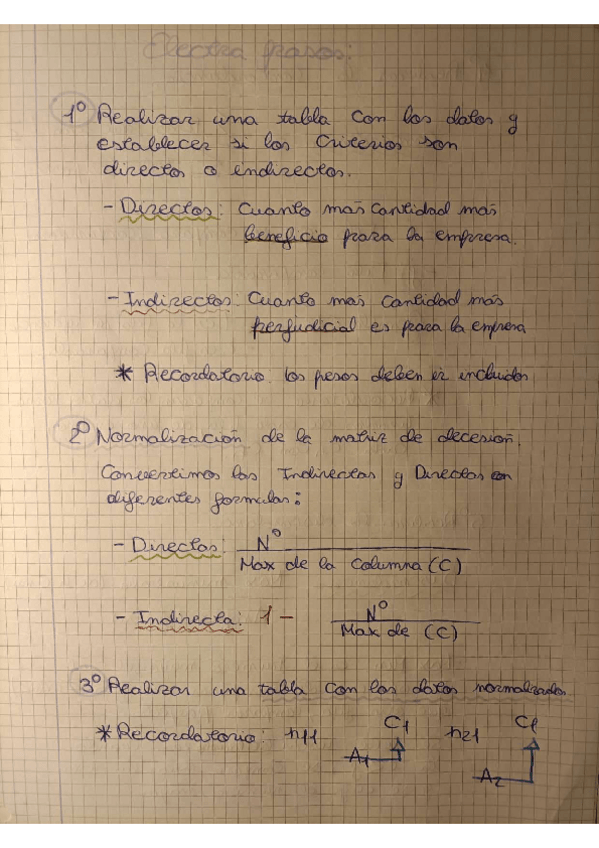 Electra pasos:
1º Realizar una tabla con los datos y
establecer si los Criterios son
directos o indirectos.
- Directos: Cuanto más cantidad más
beneficio para la empresa.
- Indirectos: Cuanto más cantidad más
perjudicial es para la empresa
* Recordatorio: los pesos deben ir incluidos
2º Normalización de la matriz de decesión.
Convertimos los Indirectos y Directos en
diferentes formulas:
- Directos: Nº
Max de la Columna (C)
- Indirecta: 1 - Nº
Max de (C)
3º Realizar una tabla con los datos normalizados
* Recordatorio: n11 C1 n21 C1
A1
A2